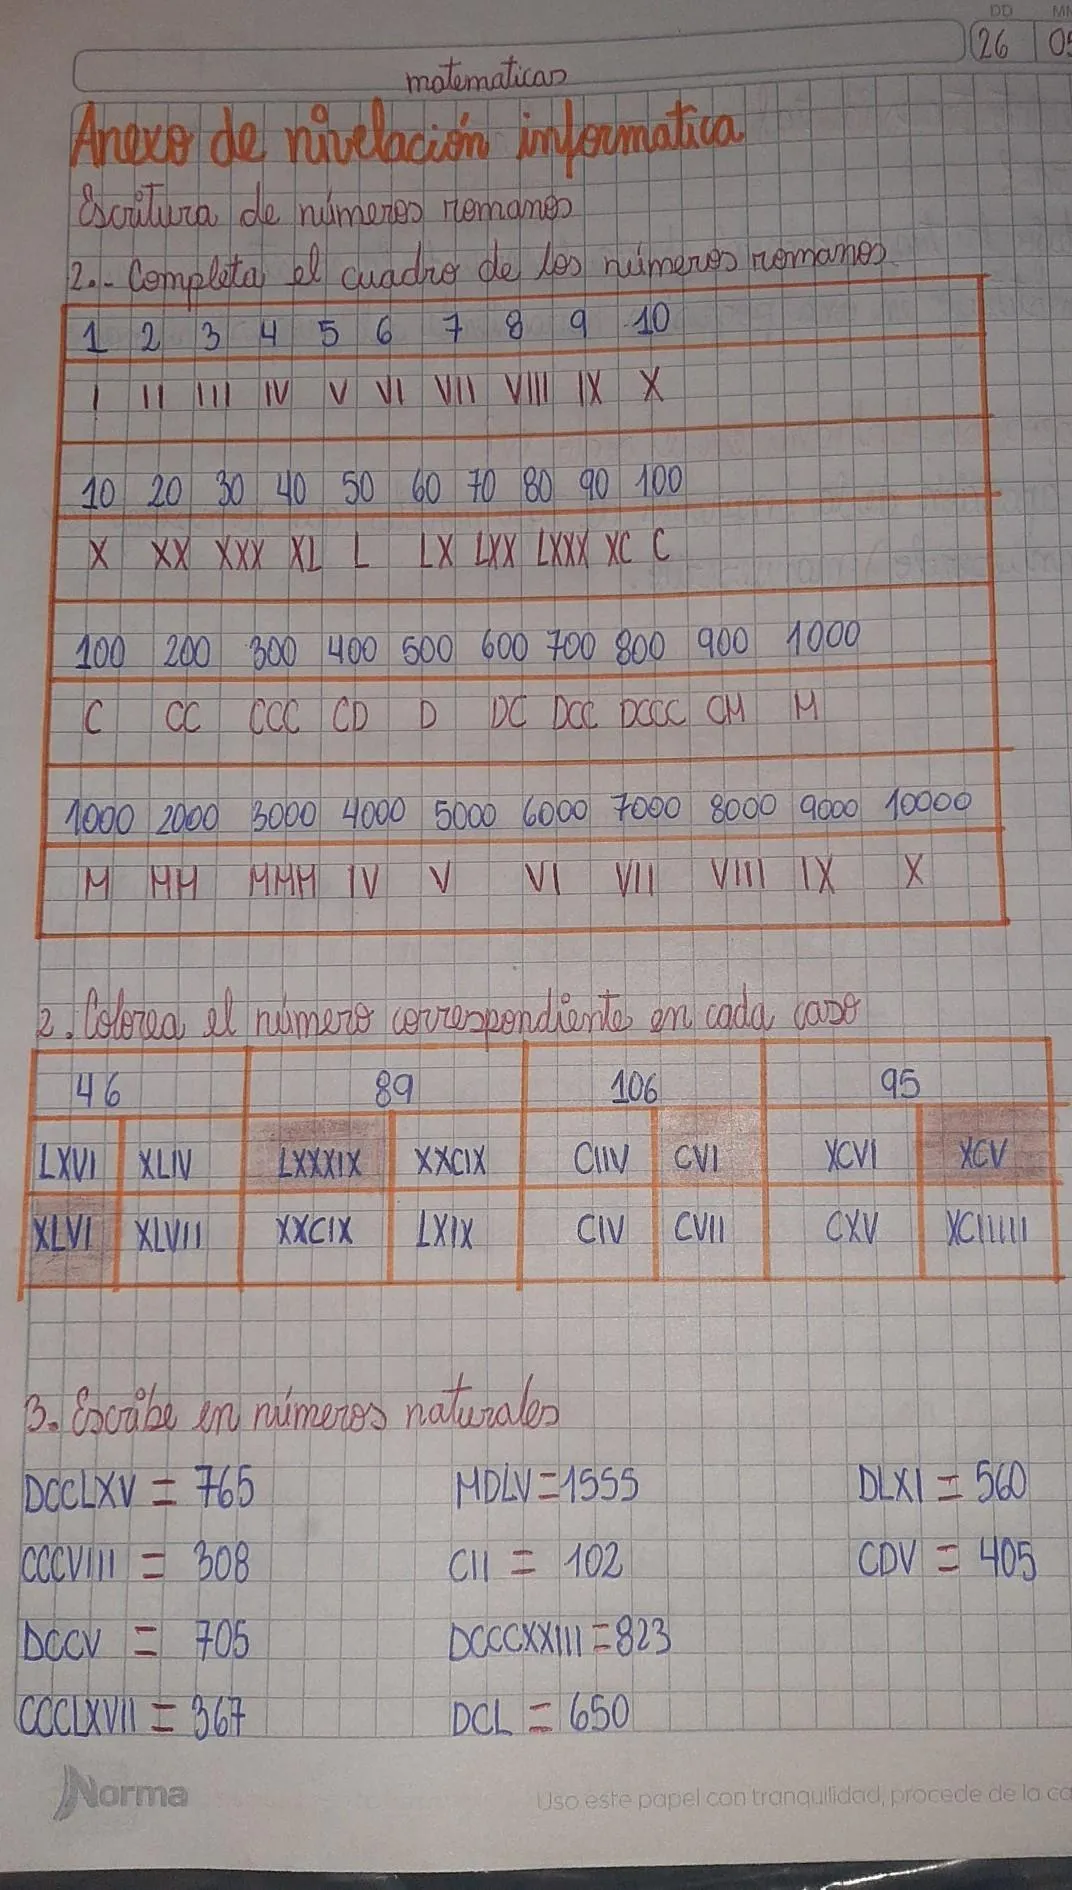 DD MM
26 05
matematicas
Anexo de nivelación informatica
Escritura de números romanos
2.- Completa el cuadro de los números romanos
1 2 3 4 5 6 7 8 9 10
I II III IV V VI VII VIII IX X
10 20 30 40 50 60 70 80 90 100
X XX XXX XL L LX LXX LXXX XC C
100 200 300 400 500 600 700 800 900 1000
C CC CCC CD D DC DCC DCCC CM M
1000 2000 3000 4000 5000 6000 7000 8000 9000 10000
M MM MMM IV V VI VII VIII IX X
2. Colorea el número correspondiente en cada caso
46 89 106 95
LXVI XLIV LXXXIX XXCIX CIIV CVI XCVI XCV
XLVI XLVII XXCIX LXIX CIV CVII CXV XCIIIII
3. Escribe en números naturales
DCCLXV = 765 MDLV = 1555 DLXI = 560
CCCVIII = 308 CII = 102 CDV = 405
DCCV = 705 DCCCXXIII = 823
CCCLXVII = 367 DCL = 650
Norma
Uso este papel con tranquilidad, procede de la ca